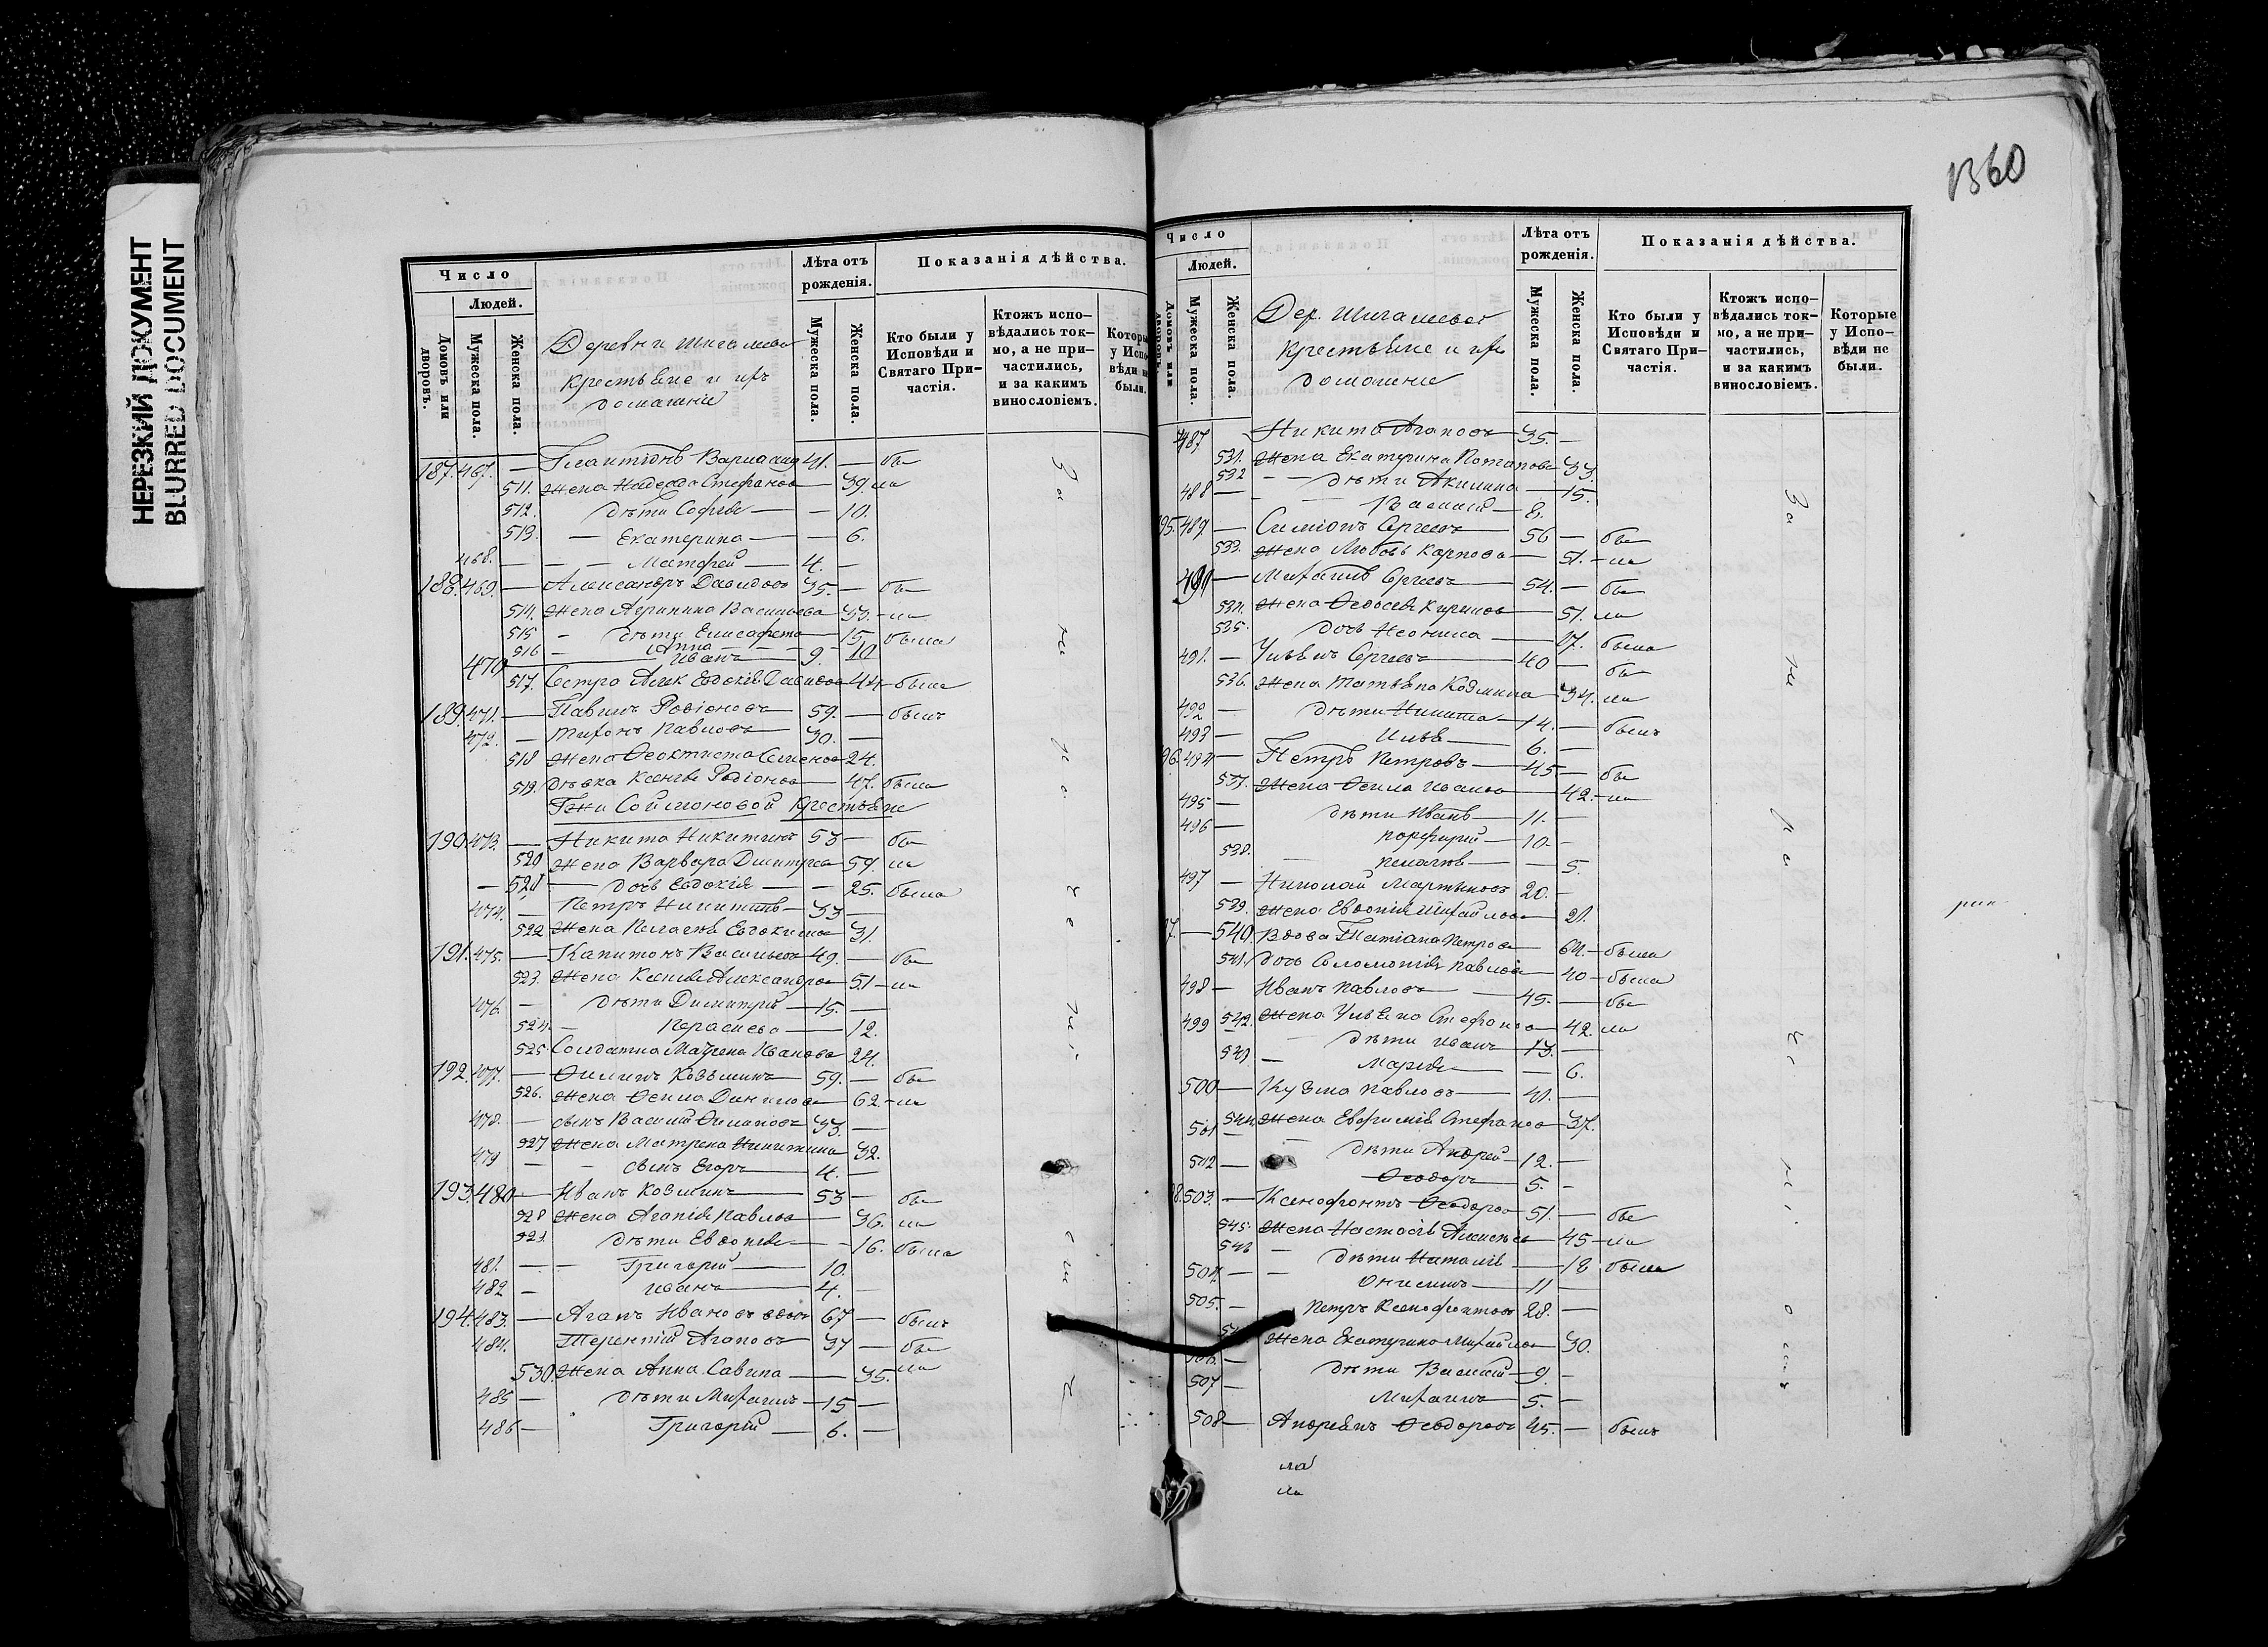 НЕРЕЗКИЙ ДОКУМЕНТ
BLURRED DOCUMENT
Число
Людей.
Домовъ или дворовъ.
Мужеска пола.
Женска пола.
Деревни
крестьяне и ихъ
домашніе
Лѣта отъ рожденія.
Мужеска пола.
Женска пола.
Показанія дѣйства.
Кто были у Исповѣди и Святаго Причастія.
Ктожъ исповѣдались токмо, а не причастились, и за какимъ винословіемъ.
187. 467. — 41. — бы
511. Жена Надежда Стефанова — 39. ла
512. дѣти Софья — — 10.
513. — Екатерина — — 6.
468. — — Матфей — 4. —
188. 469. — Александръ Давидовъ 35. — бы
514. Жена Агрипина Васильева 33. — ла
515 — дѣти Елисафета 15. была
516 — Анна — 10
470 — Иванъ — 9.
517. Сестра Алек Евдокія Давидова 44 — была
189. 471. — Павелъ Родіоновъ 59. — былъ
472. — Павловъ 30. —
518 Жена Феоктиста Семенова 24.
519. дѣвка Ксенья Родіонова 47. была
Гжи Соймоновой крестьяне
190. 473. — Никита Никитинъ 53 — бы
520 Жена Варвара Дмитріева 59. ла
— 521 — дочь Евдокія — — 25. была
474. — Петръ Никитинъ 33 —
522 Жена Пелагея Евдокимова 31.
191. 475. — Капитонъ Васильевъ 49. — бы
523. Жена Ксенія Александрова 51 — ла
476. — дѣти Димитрій — 15. —
524. — Параскева — 12.
525. Солдатка Матрена Иванова 24.
192. 477. — Филипъ Козьминъ 59. — бы
526. Жена Фекла Данилова 62. — ла
478. — сынъ Василій Филиповъ 33. —
527 Жена Матрена Никитина 32.
479 — — сынъ Егоръ — 4. —
193. 480 — Иванъ Козминъ 53 — бы
528 Жена Агапія Павлова — 36. ла
529. дѣти Евдокія — — 16. была
481. — — Григорій — 10.
482 — Иванъ — 4. —
194. 483. — Агапъ Ивановъ вдовъ 67 — былъ
484. Терентій Агаповъ — 37 — бы
530. Жена Анна Савина — 35. ла
485 — дѣти Михаилъ — 15 —
486 — Григорій — 6. —
1360
Число
Людей.
Домовъ или дворовъ.
Мужеска пола.
Женска пола.
Дер.
крестьяне и ихъ
домашніе
Лѣта отъ рожденія.
Мужеска пола.
Женска пола.
Показанія дѣйства.
Кто были у Исповѣди и Святаго Причастія.
Ктожъ исповѣдались токмо, а не причастились, и за какимъ винословіемъ.
Которые у Исповѣди не были.
487 Никита Агаповъ 35. —
531. Жена Екатерина Потапова 33.
532 — — дѣти Акилина — 15.
488 — — Василій — 8.
95. 489. — Симіонъ Сергеевъ 56 — бы
533. Жена Любовь Карпова — 51. — ла
490 — Михаилъ Сергеевъ 54. — бы
534. Жена Федосья Кирилова 51. ла
535. дочь Неонила — 17. была
491. — Ульянъ Сергеевъ 40 — бы
536. Жена Татьяна Козмина 34. ла
492 — дѣти Никита — 14. — былъ
493 — Илья — 6. —
96. 494 — Петръ Петровъ — 45 — бы
537. Жена Фекла Иванова 42. — ла
495 — дѣти Иванъ — 11. —
496 — Порфирій — 10. —
538. — Пелагея — — 5.
497 — Николай Мартыновъ 20. —
539. Жена Евдокія Михайлова 21.
7. — 540. Вдова Татіана Петрова 64. — была
541. дочь Соломонія Павлова 40 — была
498 — Иванъ Павловъ — 45. — бы
542. Жена Ульяна Стефанова 42. ла
499 — дѣти Иванъ — 13. —
543 — Марія — — 6.
500 — Кузма Павловъ — 41. —
544. Жена Евфимія Стефанова 37.
501 — дѣти Андрей — 12. —
502 — Феодоръ — 5. —
8. 503. — Ксенофонтъ Феодоровъ 51. — бы
545. Жена Настасія Алексѣева — 45 — ла
546 — дѣти Наталія — 18 была
504. — — Онисимъ — 11 —
505. — Петръ Ксенофонтовъ 28. —
Жена Екатерина Михайлова 30.
506. — дѣти Василій — 9. —
507 — Михаилъ — 5. —
508 — Андреянъ Феодоровъ 45. — былъ
ла
ла